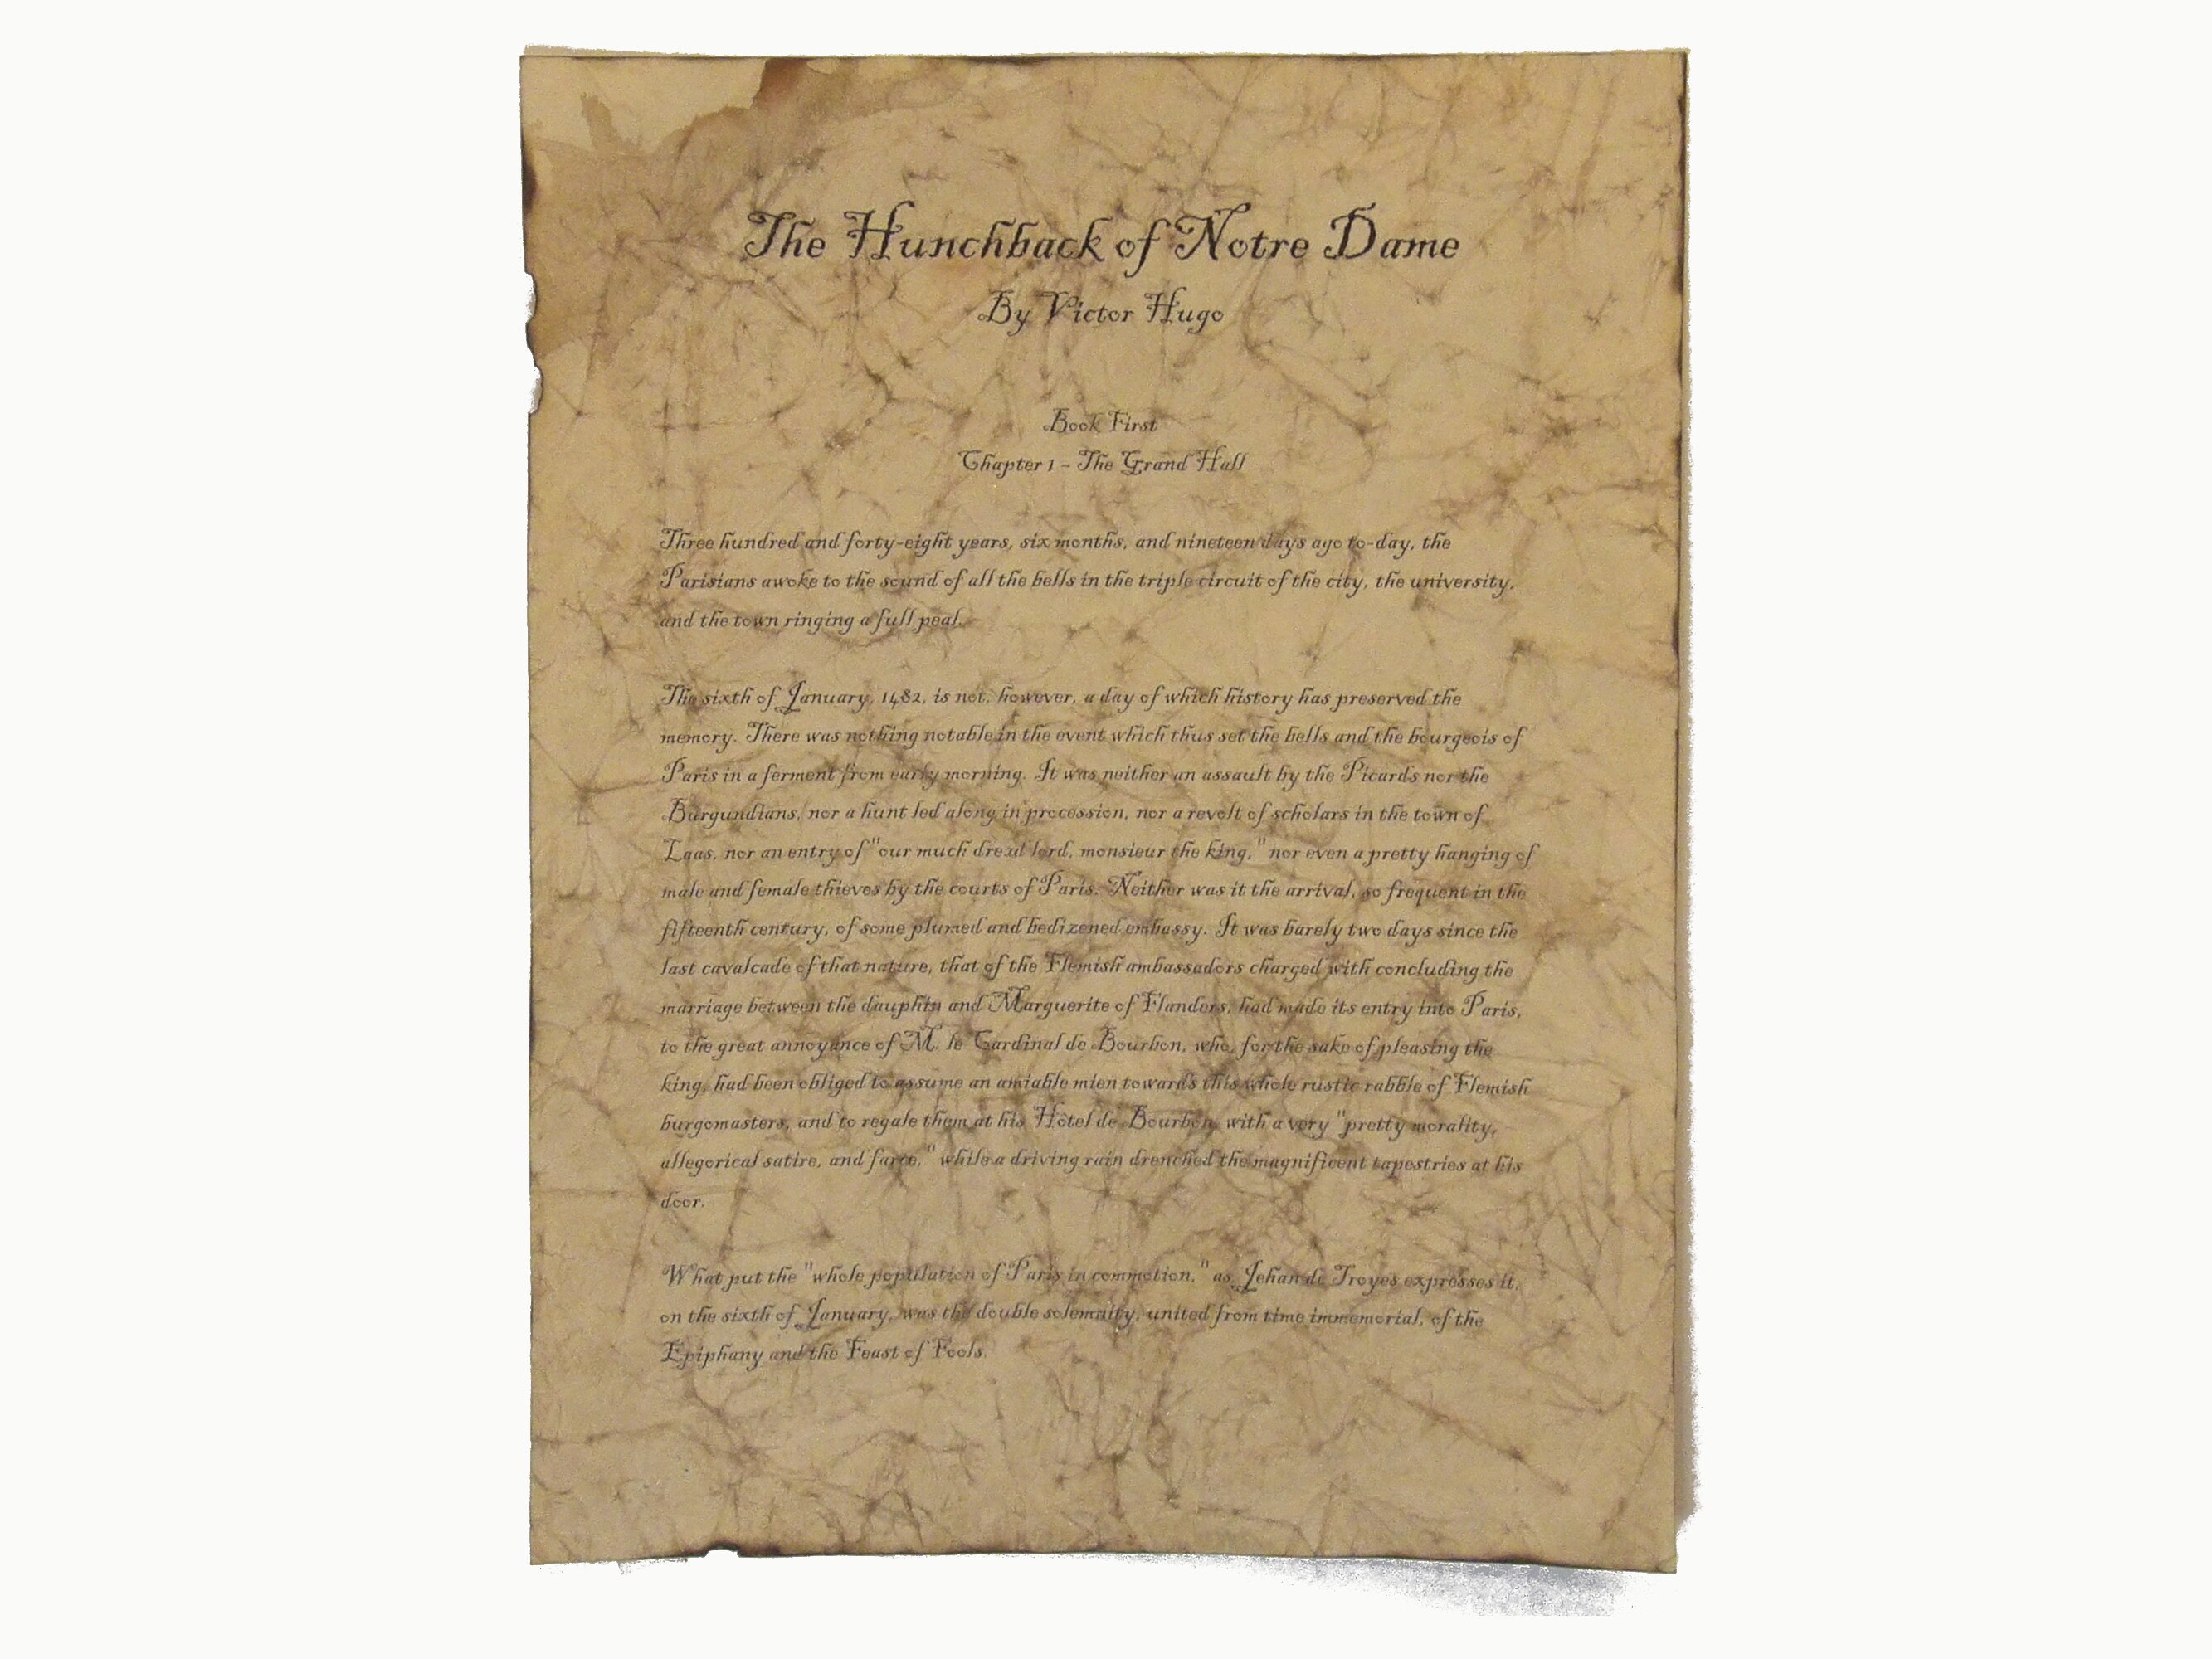 The Hunchback of Notre Dame
By Victor Hugo
Book First
Chapter 1 - The Grand Hall
Three hundred and forty-eight years, six months, and nineteen days ago to-day, the
Parisians awoke to the sound of all the bells in the triple circuit of the city, the university,
and the town ringing a full peal.
The sixth of January, 1482, is not, however, a day of which history has preserved the
memory. There was nothing notable in the event which thus set the bells and the bourgeois of
Paris in a ferment from early morning. It was neither an assault by the Picards nor the
Burgundians, nor a hunt led along in procession, nor a revolt of scholars in the town of
Laas, nor an entry of "our much dread lord, monsieur the king," nor even a pretty hanging of
male and female thieves by the courts of Paris. Neither was it the arrival, so frequent in the
fifteenth century, of some plumed and bedizened embassy. It was barely two days since the
last cavalcade of that nature, that of the Flemish ambassadors charged with concluding the
marriage between the dauphin and Marguerite of Flanders, had made its entry into Paris,
to the great annoyance of M. le Cardinal de Bourbon, who, for the sake of pleasing the
king, had been obliged to assume an amiable mien towards this whole rustic rabble of Flemish
burgomasters, and to regale them at his Hôtel de Bourbon, with a very "pretty morality,
allegorical satire, and farce," while a driving rain drenched the magnificent tapestries at his
door.
What put the "whole population of Paris in commotion," as Jehan de Troyes expresses it,
on the sixth of January, was the double solemnity, united from time immemorial, of the
Epiphany and the Feast of Fools.